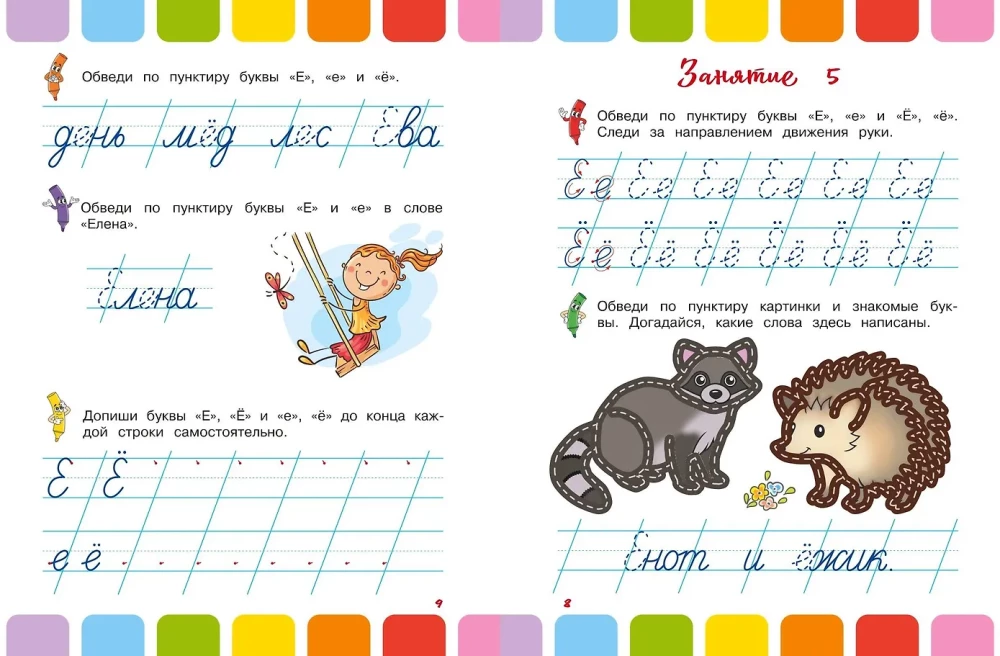 Обведи по пунктиру буквы «Е», «е» и «ё».
день мёд лес Ева
Обведи по пунктиру буквы «Е» и «е» в слове
«Елена».
Елена
Допиши буквы «Е», «Ё» и «е», «ё» до конца каж-
дой строки самостоятельно.
Е Ё
е ё
9
Занятие 5
Обведи по пунктиру буквы «Е», «е» и «Ё», «ё».
Следи за направлением движения руки.
Ее Ее Ее Ее Ее Ее
Ёё Ёё Ёё Ёё Ёё Ёё
Обведи по пунктиру картинки и знакомые бук-
вы. Догадайся, какие слова здесь написаны.
Енот и ёжик.
8